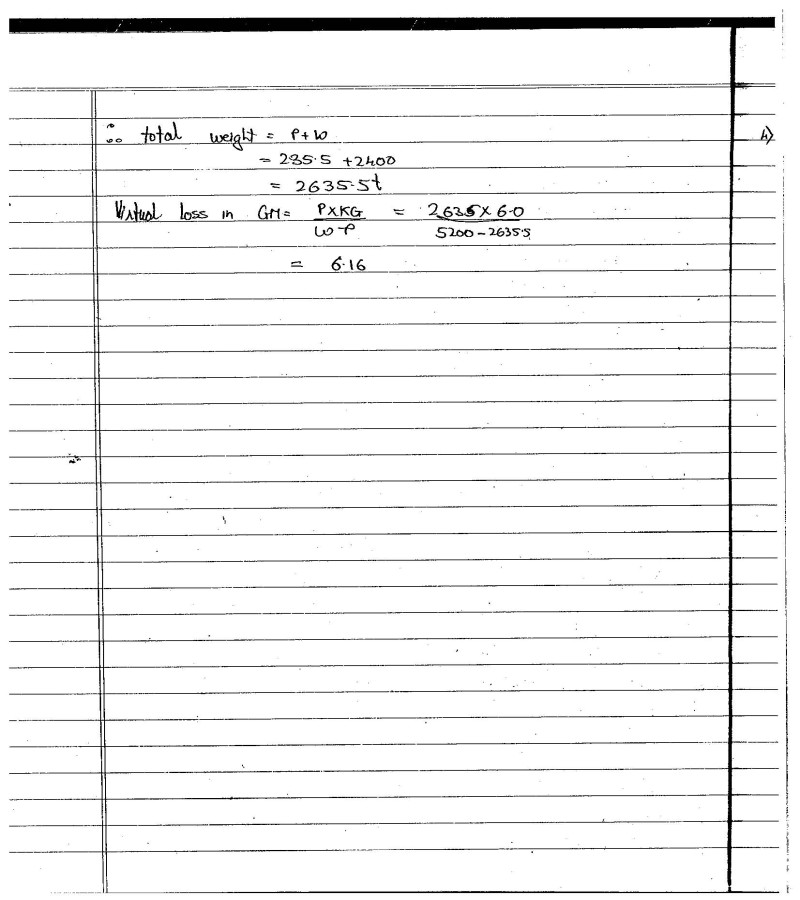 ∴ total weight = P+W 4)
= 235.5 +2400
= 2635.5t
Virtual loss in GM= P×KG / W-P = 2635×6.0 / 5200-2635.5
= 6.16